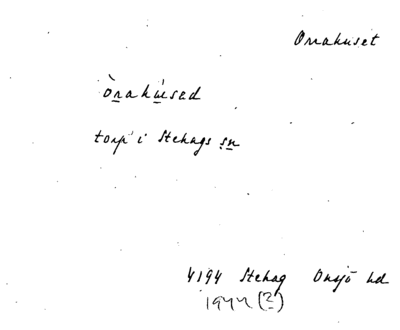 Orrahuset
òrahúsəd
torp i Stehags sn
4194 Stehag Onsjö hd
1944 (?)